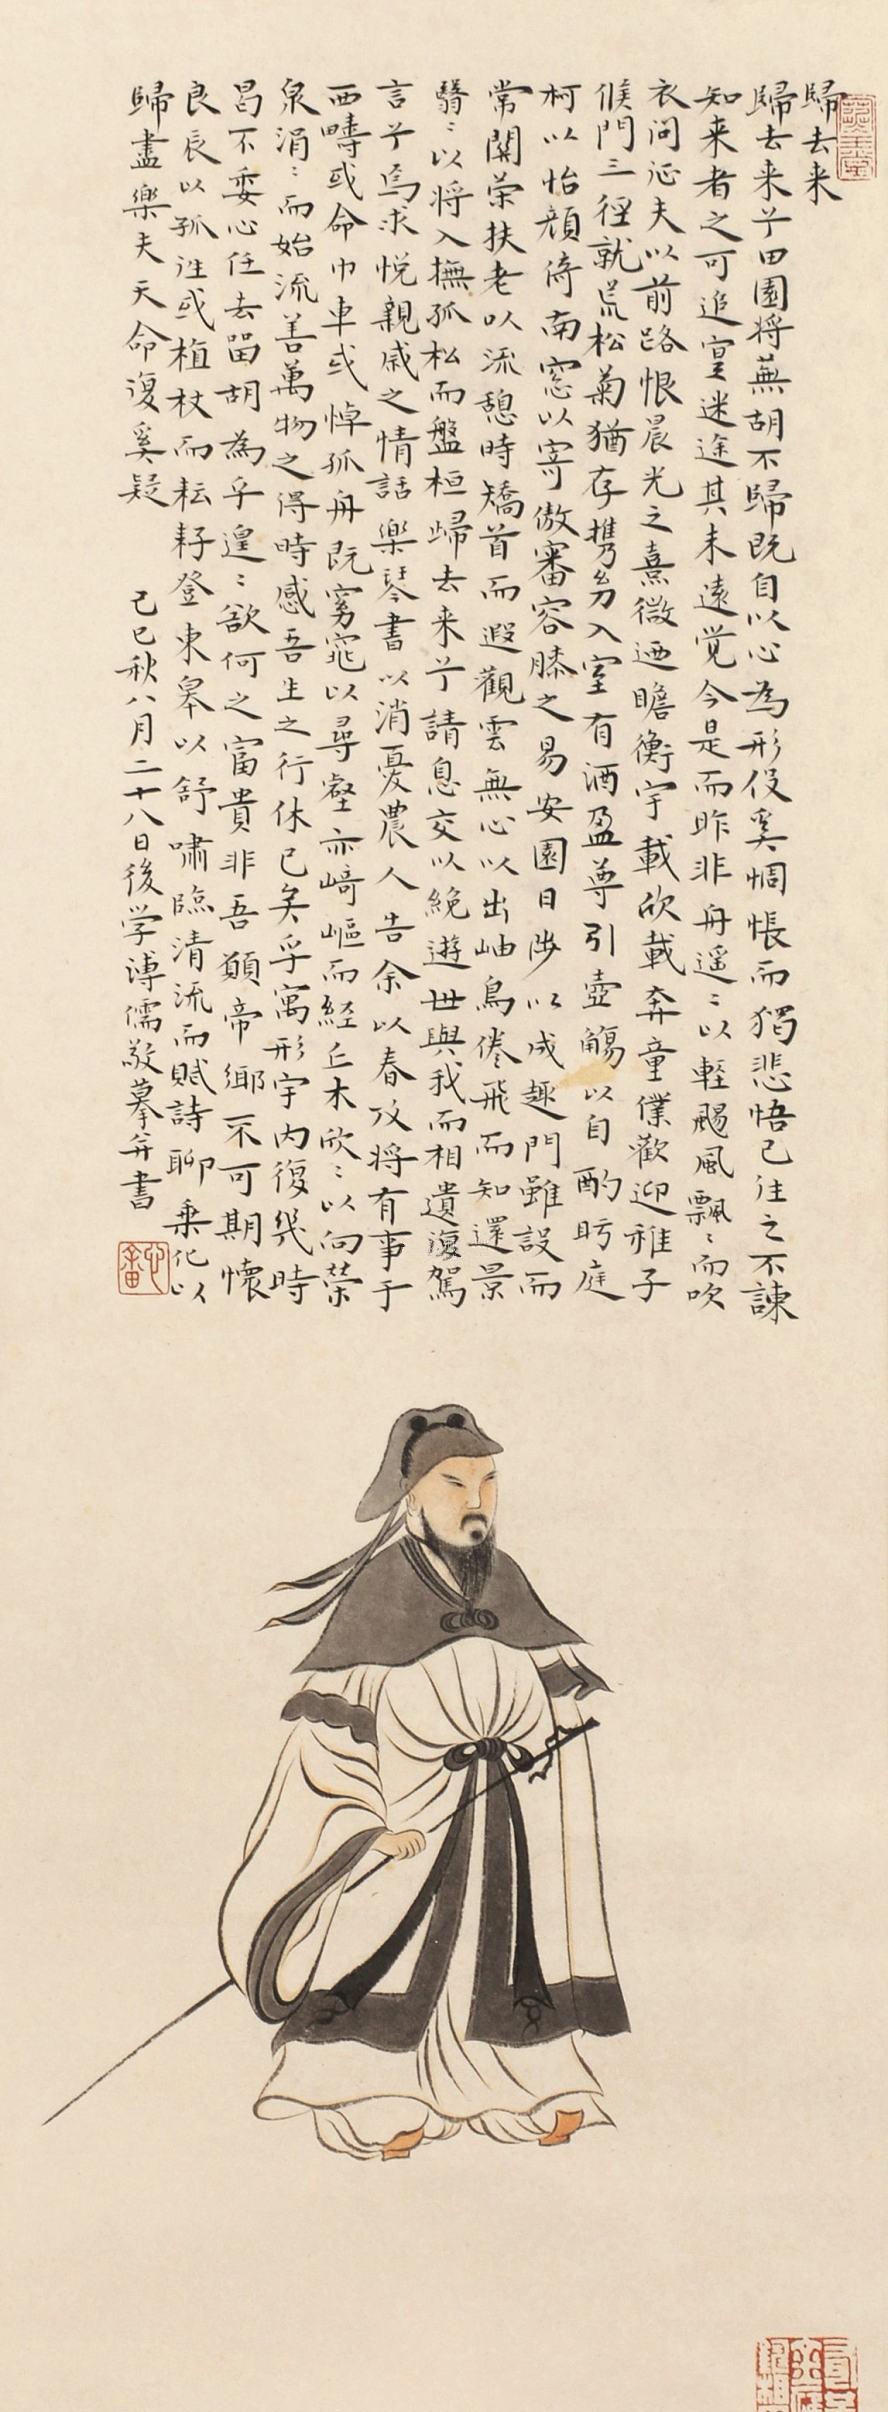 歸去来
歸去来兮田園将蕪胡不歸既自以心為形伇奚惆悵而獨悲悟已往之不諫
知来者之可追寔迷途其未遠覚今是而昨非舟遥〻以軽颺風飄〻而吹
衣问征夫以前路恨晨光之熹微廼瞻衡宇載欣載奔童僕歡迎稚子
候門三徑就荒松菊猶存携幼入室有酒盈尊引壺觴以自酌眄庭
柯以怡顔倚南窓以寄傲審容膝之易安園日涉以成趣門雖設而
常關策扶老以流憩時矯首而遐觀雲無心以出岫鳥倦飛而知還景
翳〻以将入撫孤松而盤桓歸去来兮請息交以絶遊世與我而相遺復駕
言兮焉求悦親戚之情話樂琴書以消憂農人告余以春及将有事于
西疇或命巾車或悼孤舟既窈窕以尋壑亦崎嶇而経丘木欣〻以向荣
泉涓〻而始流善萬物之得時感吾生之行休已矣乎寓形宇内復幾時
曷不委心任去留胡為乎遑〻欲何之富貴非吾願帝鄉不可期懐
良辰以孤往或植杖而耘耔登東皋以舒嘯臨清流而賦詩聊乗化以
歸盡樂夫天命復奚疑
己巳秋八月二十八日後学溥儒敬摹并書
心畬